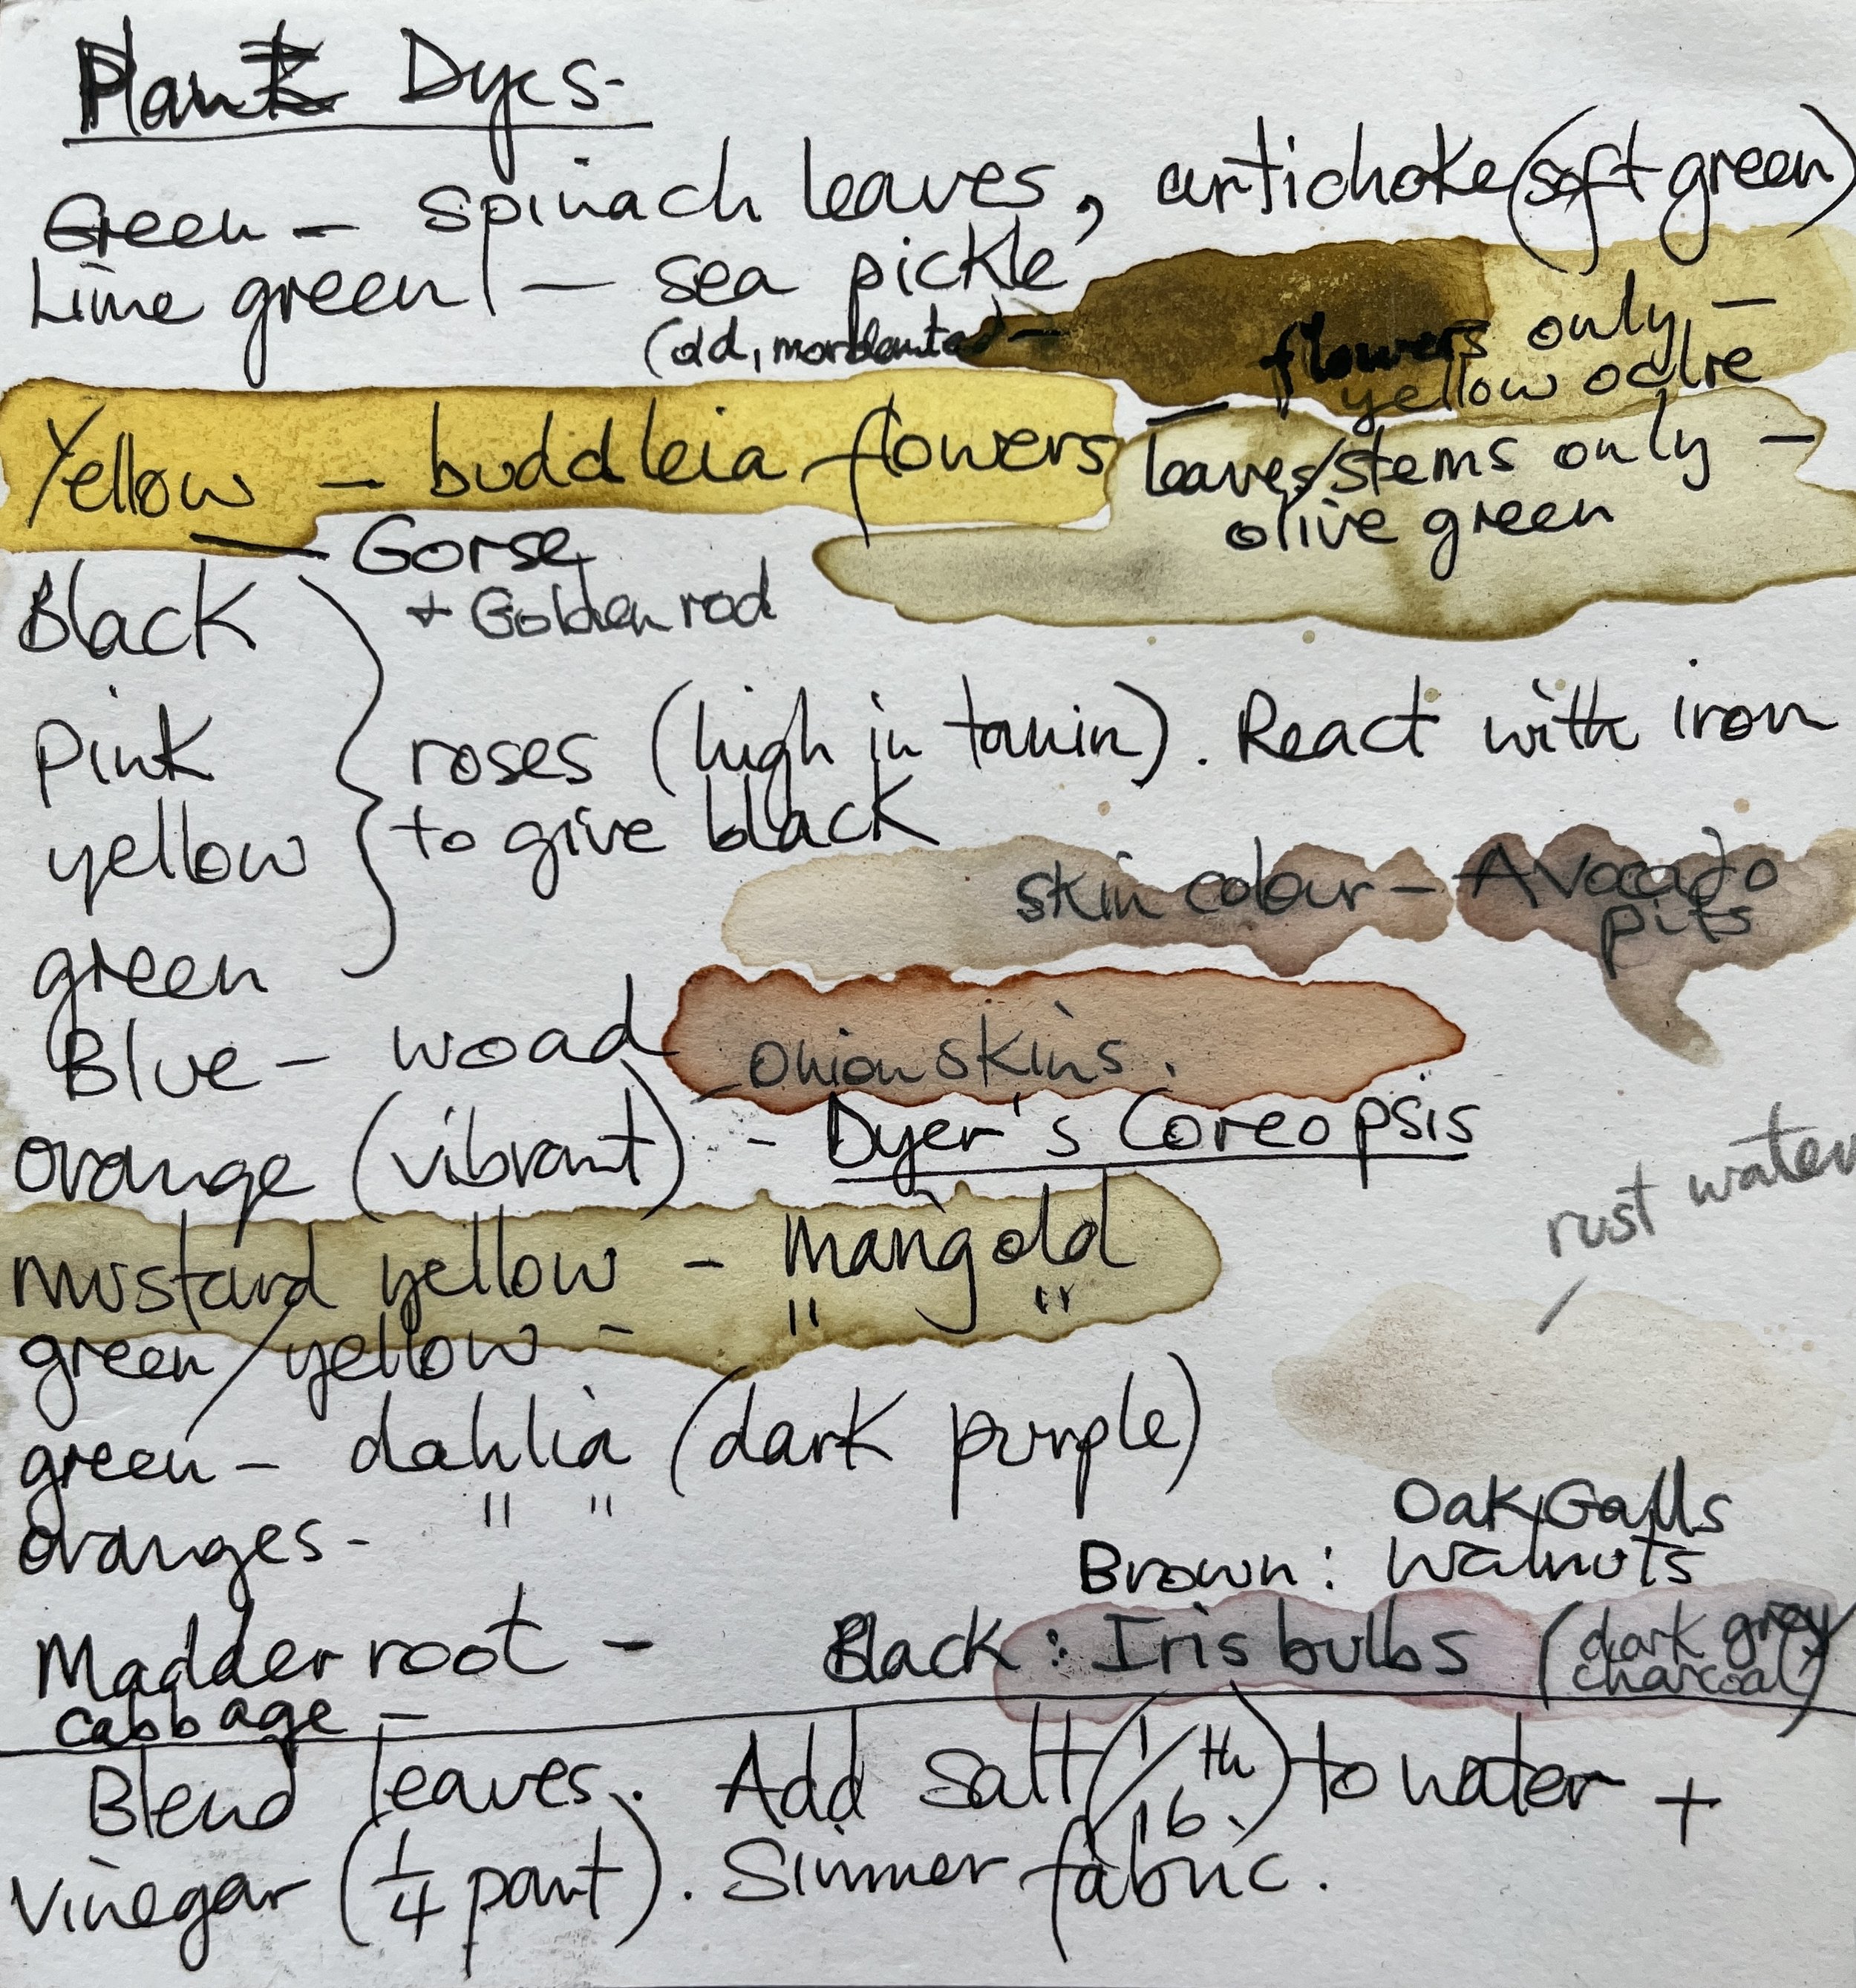 Plant Dyes-
Green - spinach leaves, artichoke (soft green)
Lime green - sea pickle
(old, mordanted) -
flowers only - yellow ochre
Yellow - buddleia flowers
leaves/stems only -
olive green
- Gorse
+ Golden rod
Black
Pink
yellow
green
roses (high in tannin). React with iron
to give black
skin colour - Avocado
pits
Blue - woad
- onion skins.
orange (vibrant) - Dyer's Coreopsis
rust water
mustard yellow - marigold
green/yellow - " "
green - dahlia (dark purple)
oranges - " "
Oak Galls
Brown: walnuts
Madder root -
Black: Iris bulbs (dark grey/
charcoal)
cabbage -
Blend leaves. Add salt (1/16th) to water +
vinegar (1/4 part). Simmer fabric.